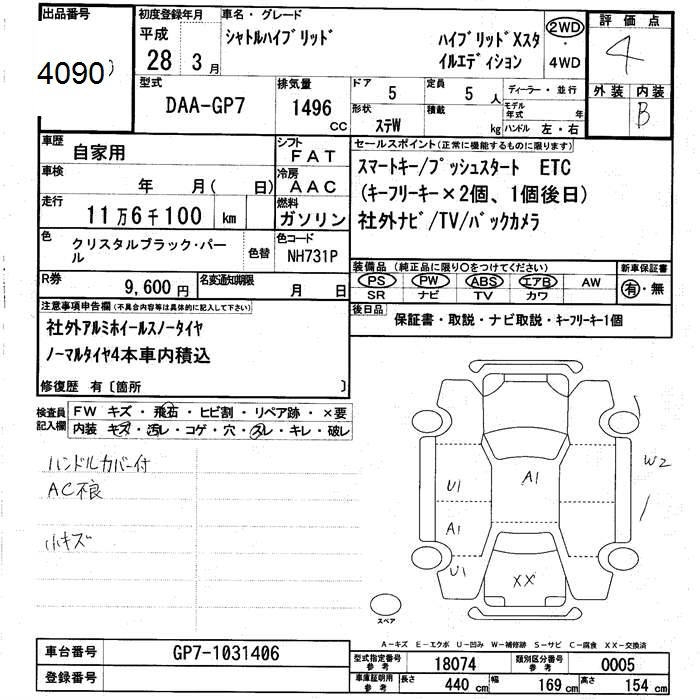 出品番号
4090
初度登録年月
平成
28 3月
車名・グレード
シャトルハイブリッド
ハイブリッドXスタ
イルエディション
2WD
・
4WD
評価点
4
外装 内装
B
型式
DAA-GP7
排気量
1496
CC
ドア
5
定員
5 人
形状
ステW
積載
kg
ディーラー・並行
モデル年式 年
ハンドル 左・右
車歴
自家用
シフト
FAT
車検
年 月( 日)
冷房
AAC
走行
11万6千100 km
燃料
ガソリン
色
クリスタルブラック・パール
色替
色コード
NH731P
R券
9,600円
名変通知期限
月 日
セールスポイント(正常に機能するものに限ります)
スマートキー/プッシュスタート ETC
(キーフリーキー×2個、1個後日)
社外ナビ/TV/バックカメラ
装備品(純正品に限り○をつけてください)
PS PW ABS エアB AW
SR ナビ TV カワ
新車保証書
有・無
後日品
保証書・取説・ナビ取説・キーフリーキー1個
注意事項申告欄(不具合内容等は具体的に記入して下さい)
社外アルミホイールスノータイヤ
ノーマルタイヤ4本車内積込
修復歴 有〔箇所 〕
検査員記入欄
FW キズ・飛石・ヒビ割・リペア跡・×要
内装 キズ・汚レ・コゲ・穴・スレ・キレ・破レ
ハンドルカバー付
AC不良
小キズ
U1
A1
A1
U1
XX
W2
スペア
A-キズ E-エクボ U-凹み W-補修跡 S-サビ C-腐食 XX-交換済
車台番号
GP7-1031406
登録番号
型式指定番号参考
18074
類別区分番号参考
0005
車庫証明用参考
長さ 440 cm
幅 169 cm
高さ 154 cm